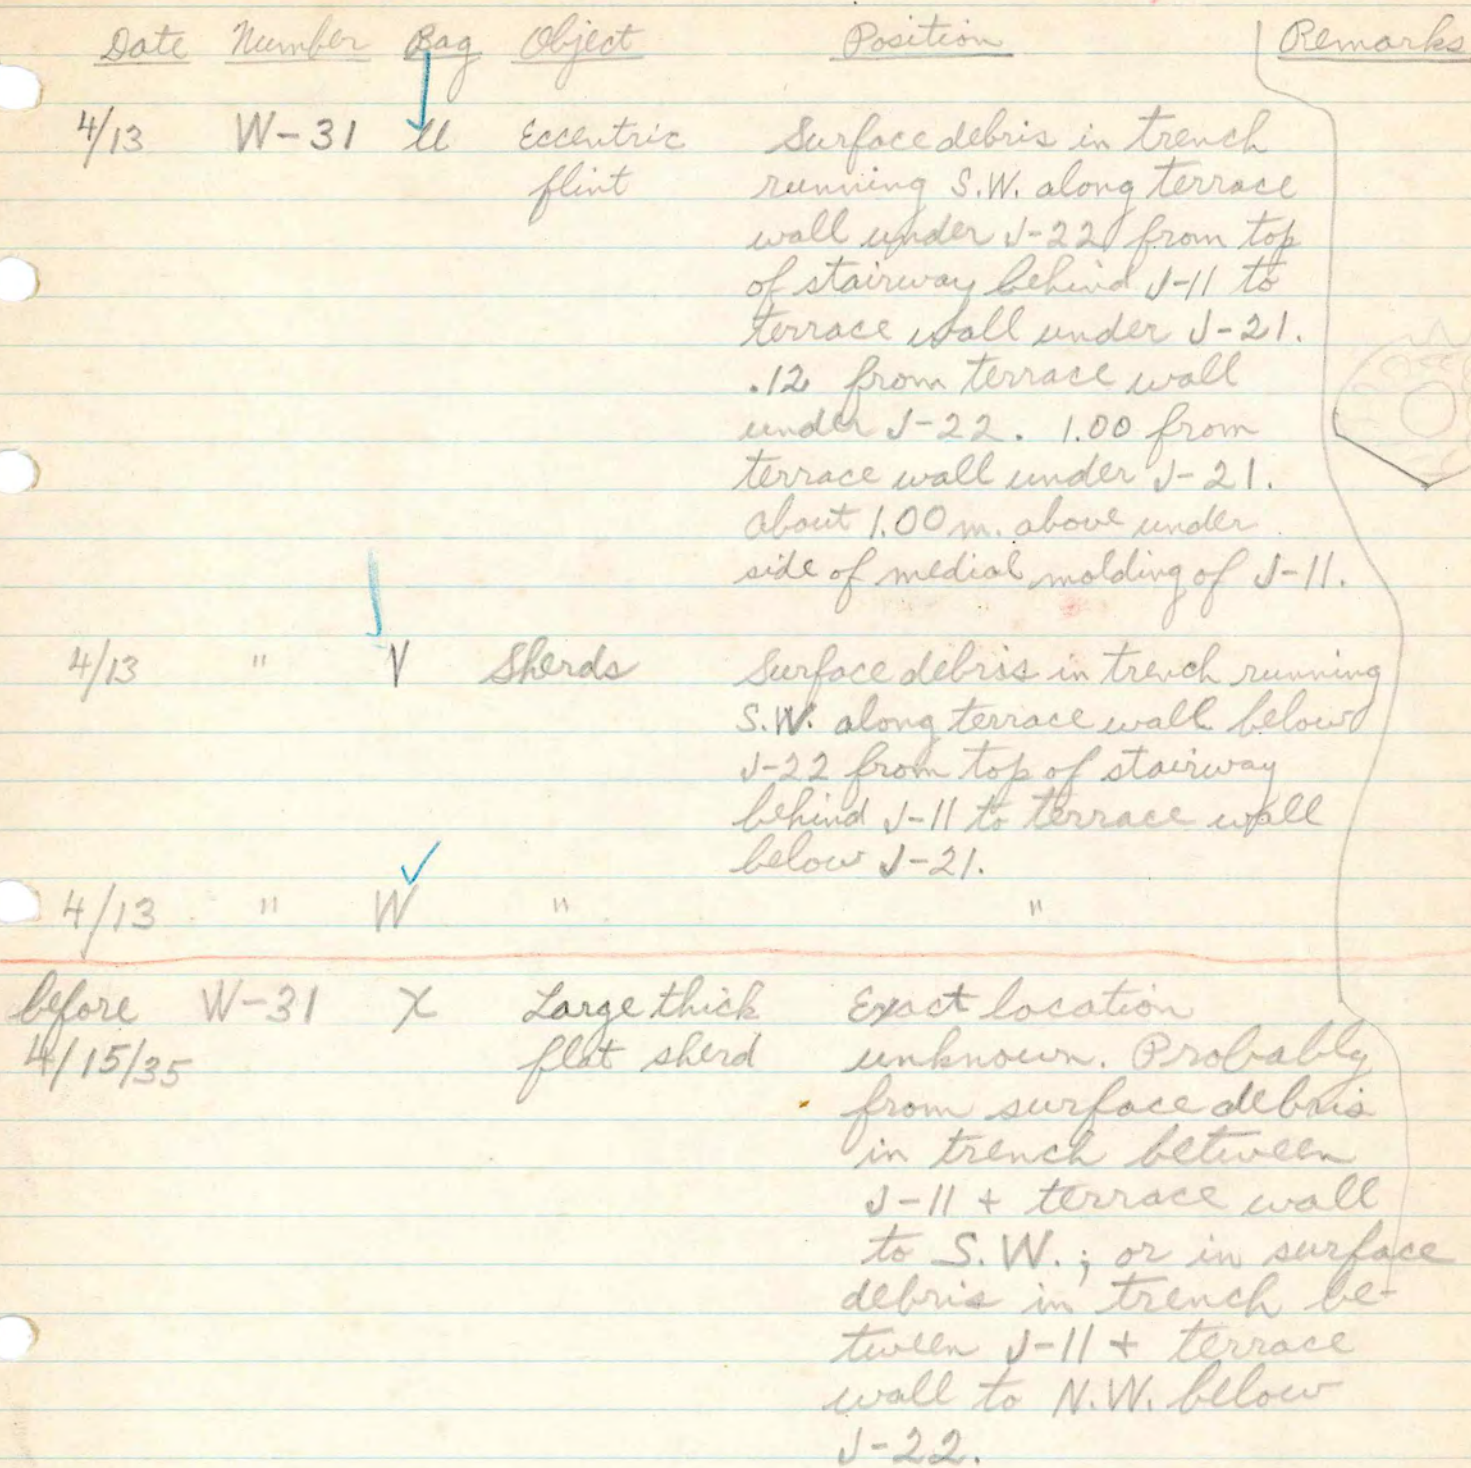 Date Number Bag Object Position Remarks
4/13 W-31 U Eccentric Surface debris in trench
flint running S.W. along terrace
wall under J-22 from top
of stairway behind J-11 to
terrace wall under J-21.
.12 from terrace wall
under J-22. 1.00 from
terrace wall under J-21.
About 1.00 m. above under
side of medial molding of J-11.
4/13 " V Sherds Surface debris in trench running
S.W. along terrace wall below
J-22 from top of stairway
behind J-11 to terrace wall
below J-21.
4/13 " W " "
before W-31 X Large thick Exact location
4/15/35 flat sherd unknown. Probably
from surface debris
in trench between
J-11 + terrace wall
to S.W.; or in surface
debris in trench be-
tween J-11 + terrace
wall to N.W. below
J-22.